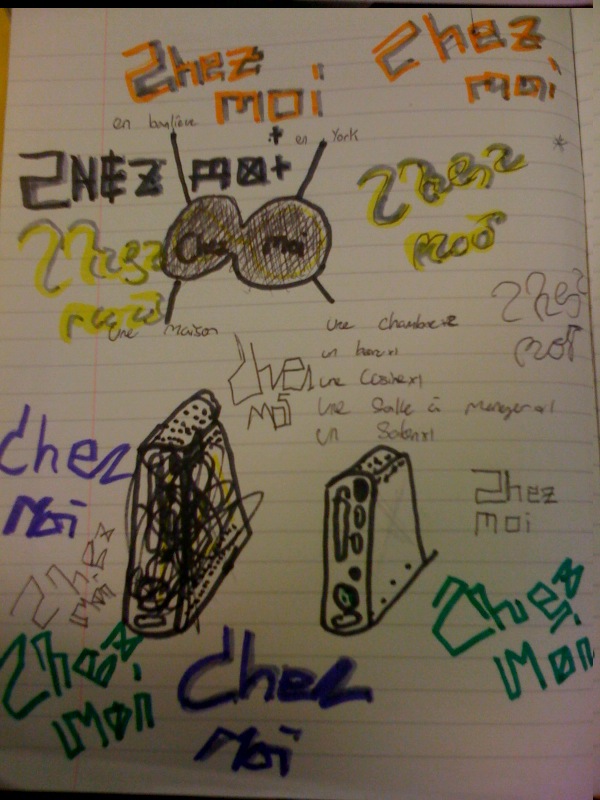 Chez
moi
Chez
moi
en banlieue
+
en York
CHEZ MOI
Chez
moi
Chez
moi
Chez moi
Chez
moi
Une Maison
une chambre x2
un x1
une Cuisine x1
Une Salle à manger x1
un Salon x1
Chez
moi
Chez
Moi
Chez
moi
Chez
moi
Chez
moi
Chez
moi
Chez
moi